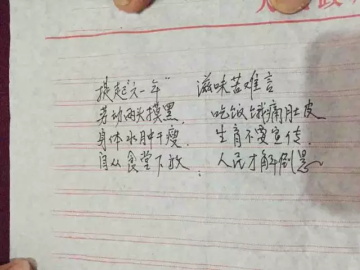 提起"六一年" 滋味苦难言
劳动两头摸黑, 吃饭饿痛肚皮
身体水肿干瘦, 生育不要宣传,
自从食堂下放, 人民才解倒悬